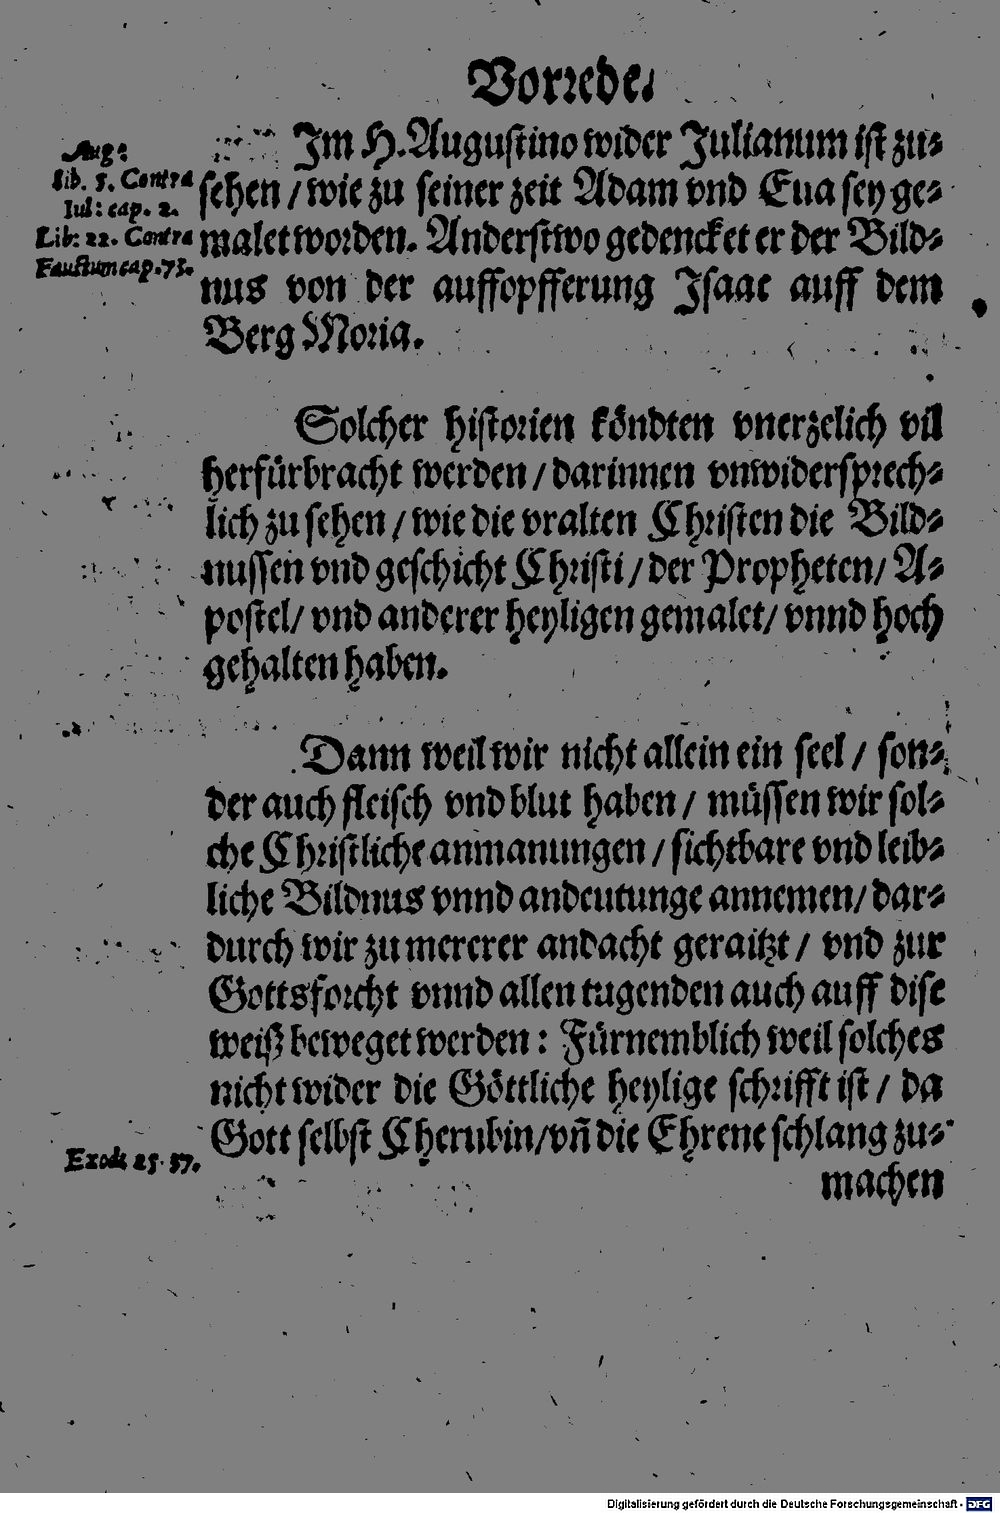 Vorrede.
Aug:
lib. 5. Contra
Iul: cap. 2.
Lib: 22. Contra
Faustum cap. 73.
Im H. Augustino wider Julianum ist zu-
sehen / wie zu seiner zeit Adam vnd Eua sey ge-
malet worden. Anderstwo gedencket er der Bild-
nus von der auffopfferung Isaac auff dem
Berg Moria.
Solcher historien köndten vnerzelich vil
herfürbracht werden / darinnen vnwidersprech-
lich zu sehen / wie die vralten Christen die Bild-
nussen vnd geschicht Christi / der Propheten / A-
postel / vnd anderer heyligen gemalet / vnnd hoch
gehalten haben.
Dann weil wir nicht allein ein seel / son-
der auch fleisch vnd blut haben / müssen wir sol-
che Christliche anmanungen / sichtbare vnd leib-
liche Bildnus vnnd andeutunge annemen / dar-
durch wir zu mererer andacht geraitzt / vnd zur
Gottsforcht vnnd allen tugenden auch auff dise
weiß beweget werden : Fürnemblich weil solches
nicht wider die Göttliche heylige schrifft ist / da
Gott selbst Cherubin / vñ die Ehrene schlang zu-
Exod: 25. 37.
machen
Digitalisierung gefördert durch die Deutsche Forschungsgemeinschaft - DFG